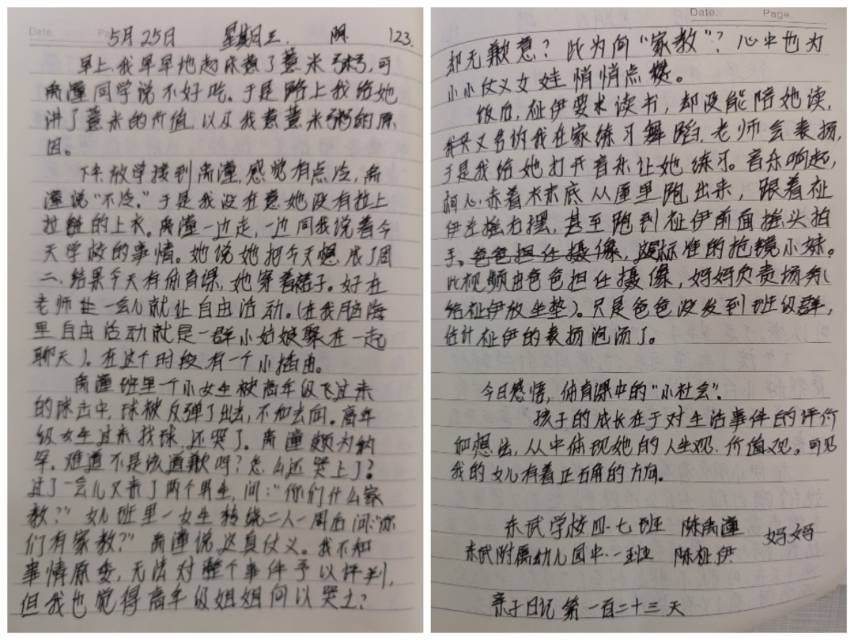 Date.
Page
5月25日 星期日三 阴 123.
早上,我早早地起床熬了薏米粥,可
禹潼同学说不好吃。于是路上我给她
讲了薏米的价值,以及我煮薏米粥的原
因。
下午放学接到禹潼,感觉有点冷,禹
潼说"不冷。"于是我没在意她没有拉上
拉链的上衣。禹潼一边走,一边同我说着今
天学校的事情。她说她把今天想成了周
二,结果今天有体育课,她穿着裙子。好在
老师让一会儿就让自由活动。(在我脑海
里自由活动就是一群小姑娘聚在一起
聊天)。在这个时段有一个小插曲。
禹潼班里一个小女生被高年级飞过来
的球击中,球被反弹了出去,不知去向。高年
级女生过来找球,还哭了。禹潼颇为纳
罕,难道不是该道歉吗?怎么还哭上了?
过了一会儿又来了两个男生,问:"你们什么家
教?"女儿班里一女生转绕二人一周后问:"你
们有家教?"禹潼说这真仗义。我不知
事情原委,无法对整个事件予以评判,
但我也觉得高年级姐姐何以哭上?
Date.
Page
却无歉意?此为何"家教"?心中也为
小小仗义女娃悄悄点赞。
饭后,祉伊要求读书,却没能陪她读,
我又告诉我在家练习舞蹈,老师会表扬,
于是我给她打开音乐让她练习。音乐响起,
赤着木木底从屋里跑出来,跟着祉
伊左摇右摆,甚至跑到祉伊前面摇头拍
手。爸爸担任摄像,标准的抢镜小妹。
此视频由爸爸担任摄像,妈妈负责场务(
给祉伊放坐垫)。只是爸爸没发到班级群,
估计祉伊的表扬泡汤了。
今日感悟,体育课中的"小社会"。
孩子的成长在于对生活事件的评价
和想法,从中体现她的人生观、价值观。可见
我的女儿有着正确的方向。
东武学校四·七班 陈禹潼 妈妈
东武附属幼儿园中·一班 陈祉伊
亲子日记 第一百二十三天